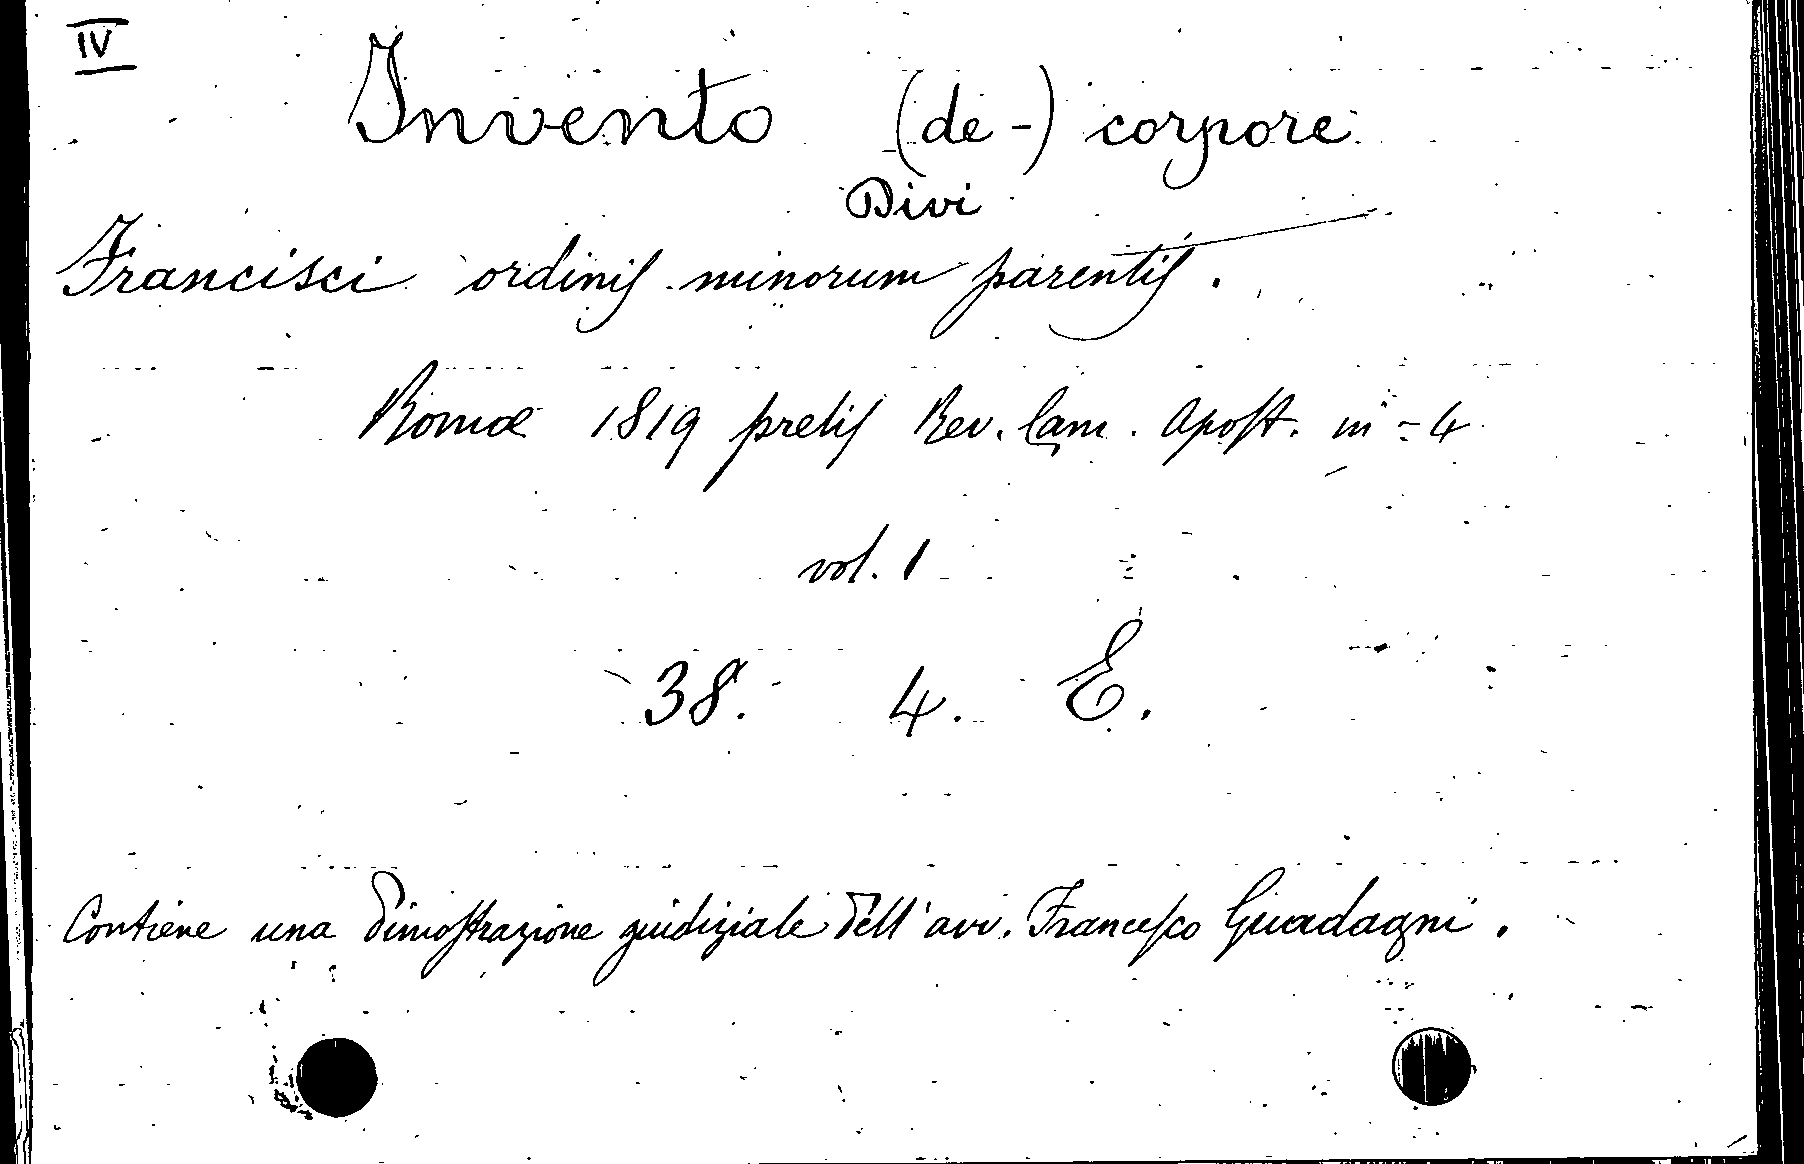 IV
Invento (de-) corpore
Divi
Francisci ordinis minorum parentis.
Romæ 1819 prelis Rev. Cam. Apost. in-4
vol. 1
38. 4. E.
Contiene una dimostrazione giudiziale dell'avv. Francesco Guadagni.